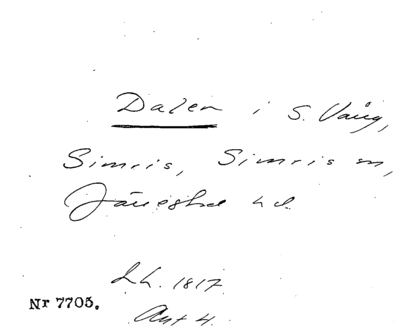 Dalen i S. Vång,
Simris, Simris sn,
Järrestad hd.
L.h. 1817
Akt 4.
Nr 7705.